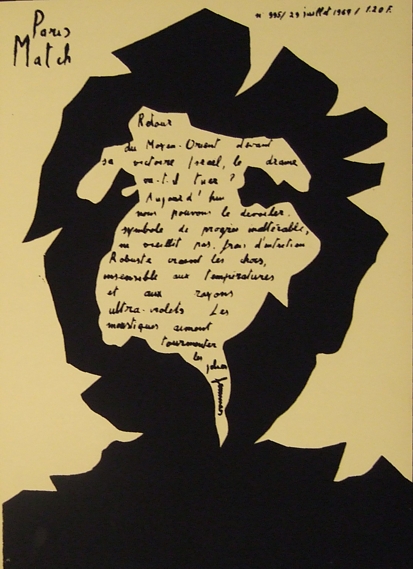 Paris
Match
n° 995/ 29 juillet 1969 / 1.20 F.
Retour
du Moyen-Orient devant
sa victoire Israel, le drame
va-t-il tuer ?
Aujourd'hui
nous pouvons le dévoiler.
symbole de progrès inaltérable,
ne vieillit pas. frais d'entretien
Robuste craent les chocs,
insensible aux températures
et aux rayons
ultra-violets Les
moustiques aiment
tourmenter
les jolies
femmes